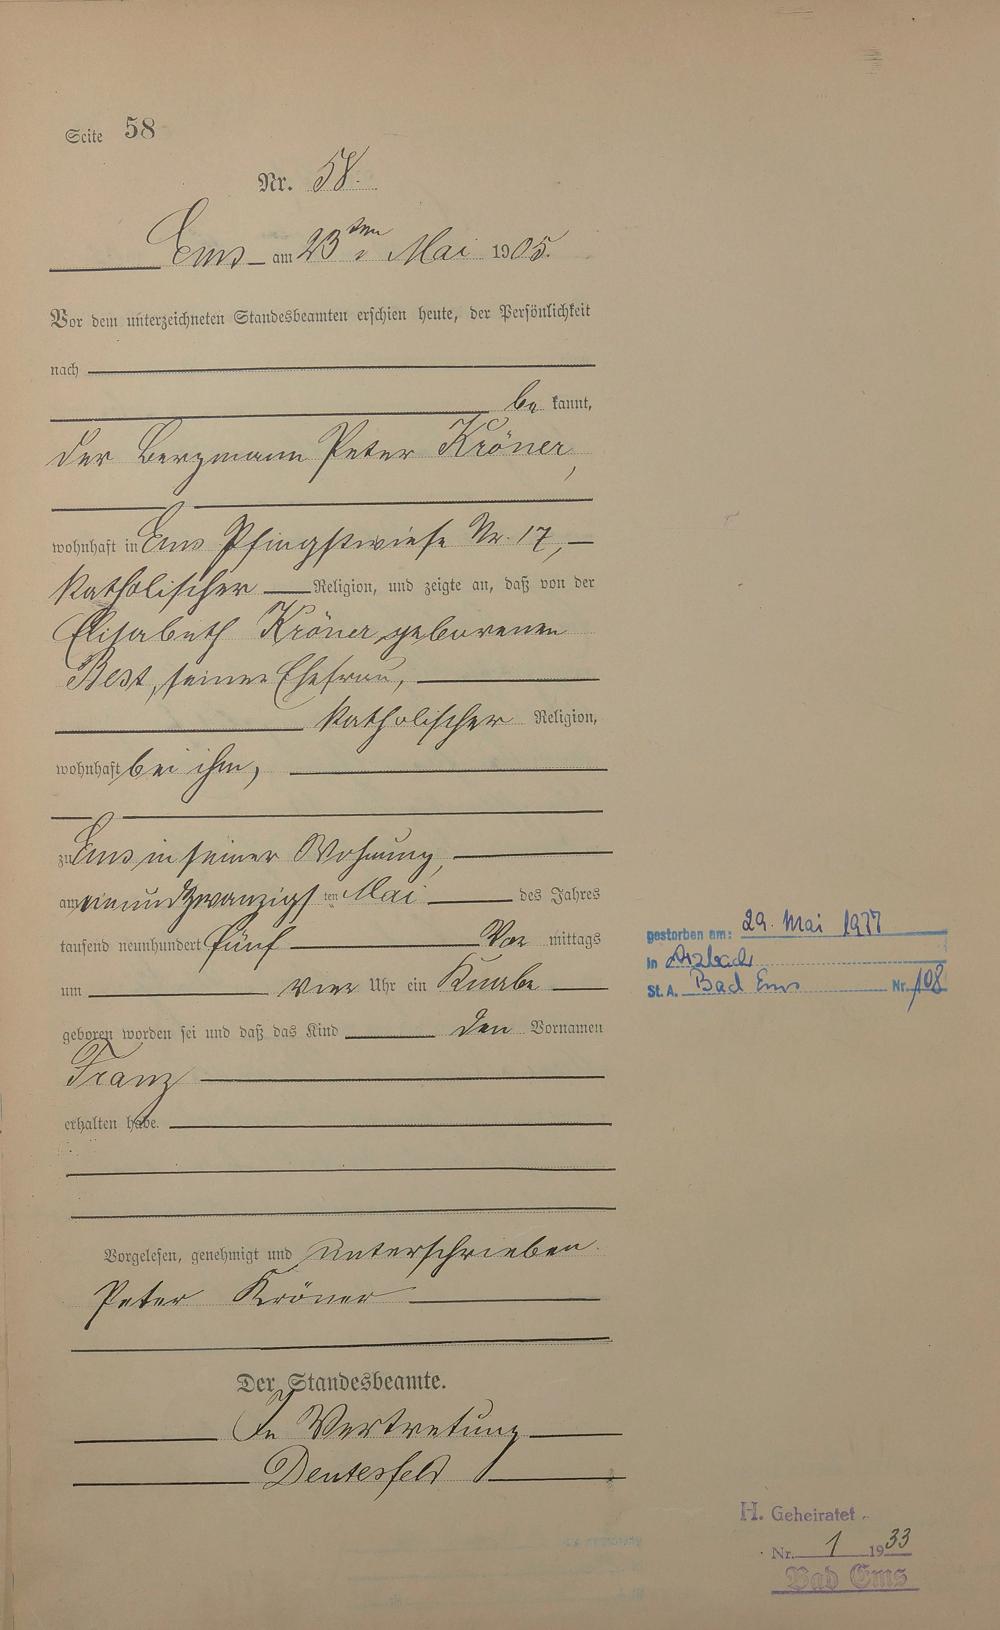 Seite 58
Nr. 58.
Ems am 23ten Mai 1905.
Vor dem unterzeichneten Standesbeamten erschien heute, der Persönlichkeit
nach
be kannt,
der Bergmann Peter Kröner,
wohnhaft in Ems Pfingstwiese Nr. 17,
katholischer Religion, und zeigte an, daß von der
Elisabeth Kröner geborenen
Best, seiner Ehefrau,
katholischer Religion,
wohnhaft bei ihm,
zu Ems in seiner Wohnung,
am einundzwanzigsten Mai des Jahres
tausend neunhundert fünf Vor mittags
um vier Uhr ein Knabe
geboren worden sei und daß das Kind den Vornamen
Franz
erhalten habe.
Vorgelesen, genehmigt und unterschrieben.
Peter Kröner
Der Standesbeamte.
In Vertretung
gestorben am: 29. Mai 1977
in Arzbach
St. A. Bad Ems Nr. 108
H. Geheiratet
Nr. 1 1933
Bad Ems